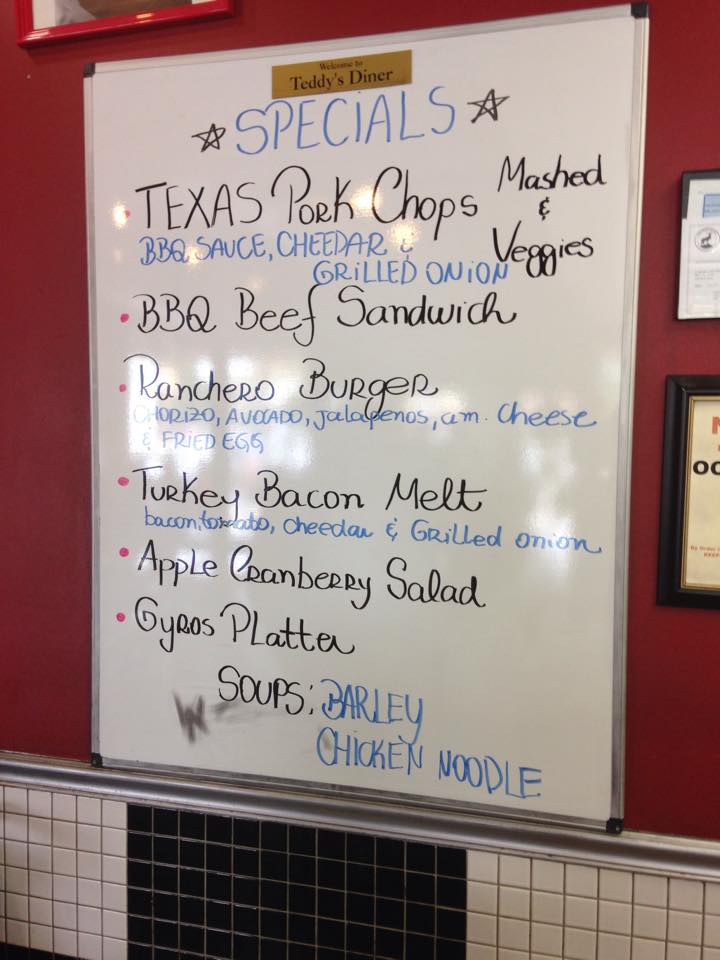 Welcome to
Teddy's Diner
SPECIALS
TEXAS Pork Chops Mashed & Veggies
BBQ SAUCE, CHEEDAR &
GRILLED ONION
BBQ Beef Sandwich
Ranchero Burger
CHORIZO, AVOCADO, Jalapenos, am. Cheese
& FRIED EGG
Turkey Bacon Melt
bacon, tomato, cheedar & Grilled onion
Apple Cranberry Salad
Gyros Platter
SOUPS: BARLEY
CHICKEN NOODLE